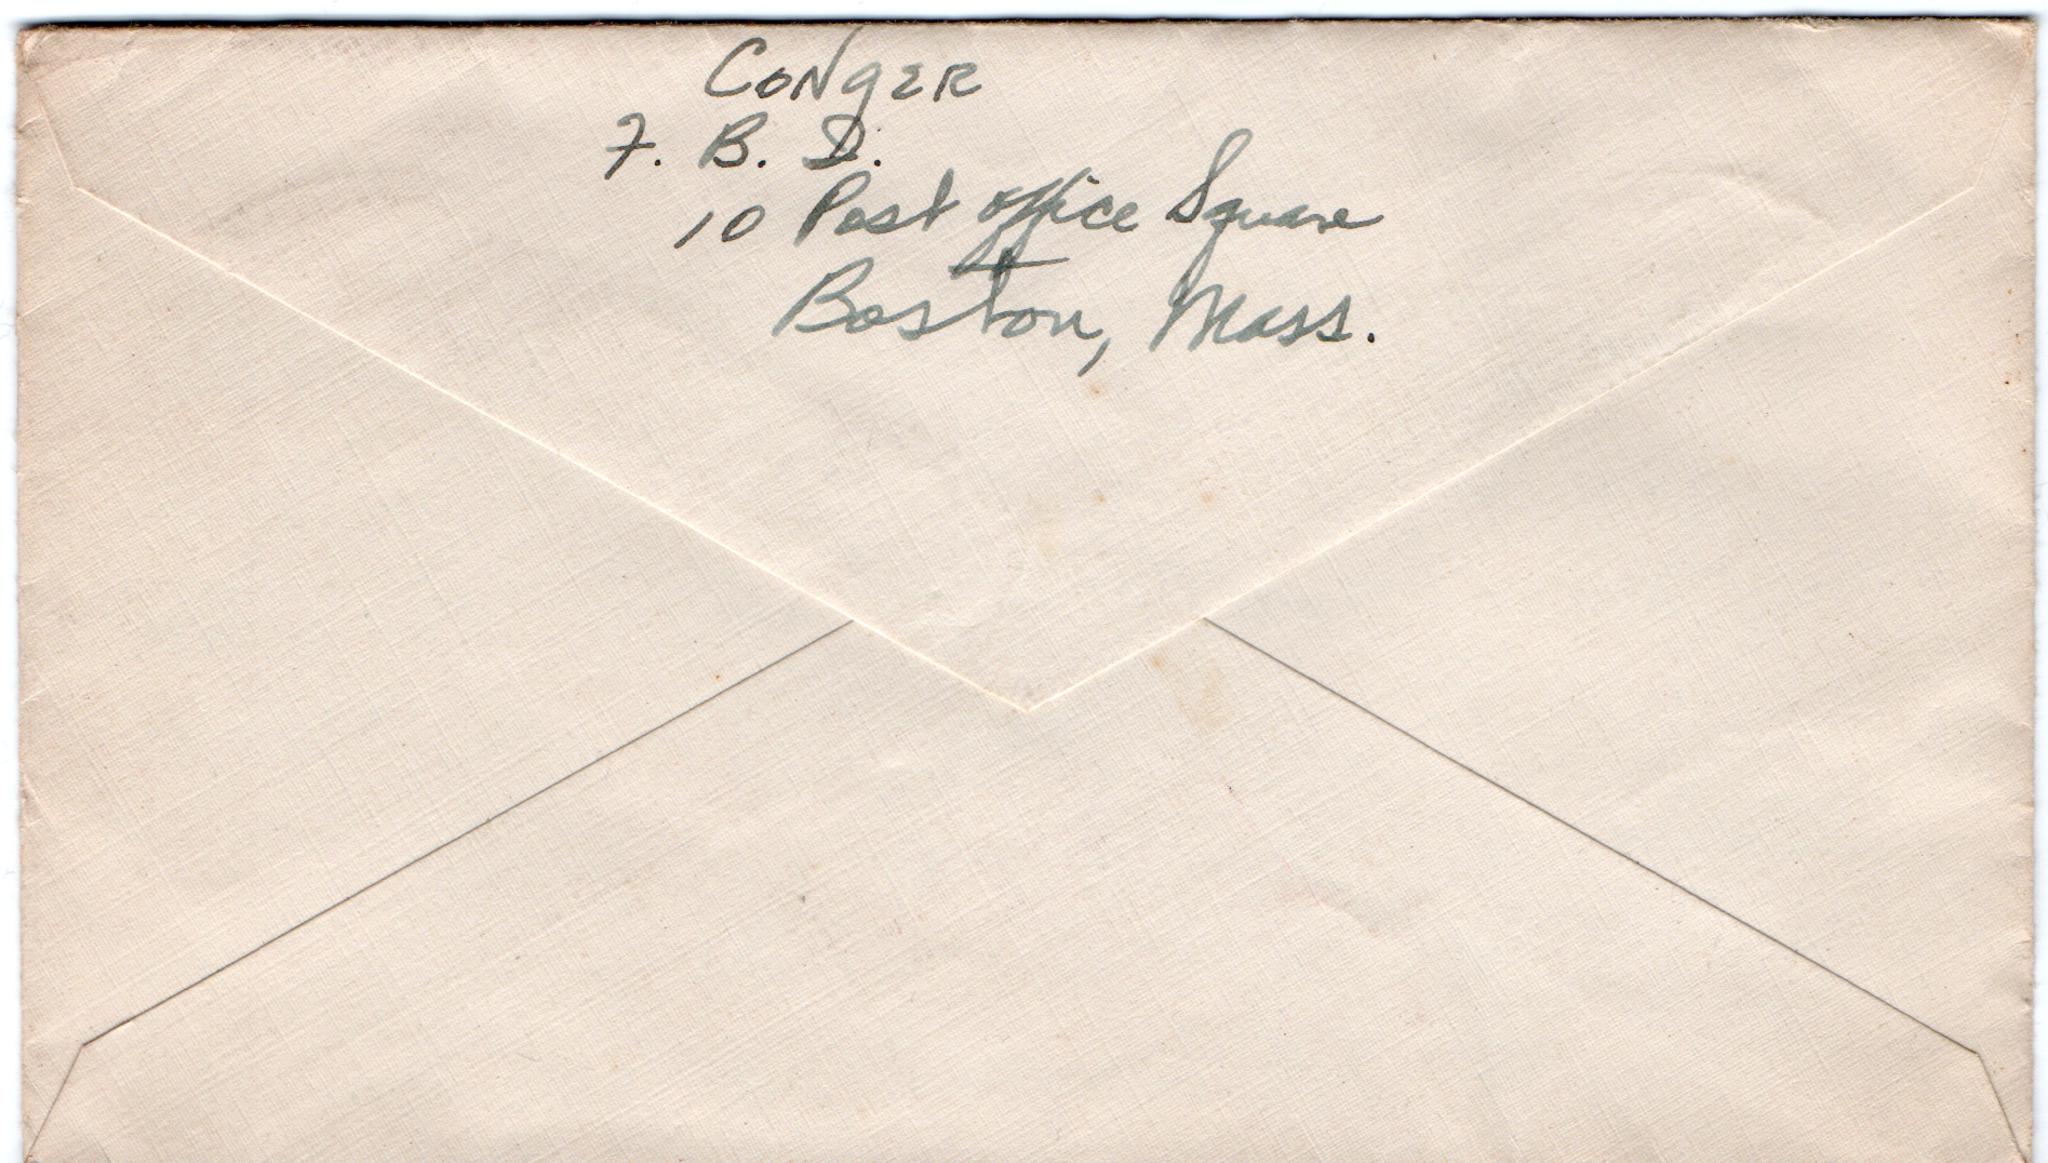 CONgER
F. B. D.
10 Post office Square
Boston, Mass.